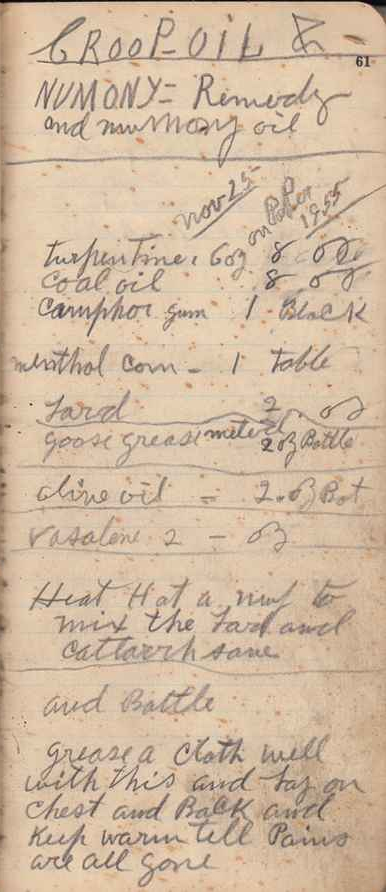 CROOP-OIL &
61
NUMONY= Remedy
and numony oil
Nov 25
on Paper
1955
turpentine, 6oz 8 oz
Coal oil 8 oz
Camphor gum 1 Black
menthol corn - 1 table
Lard 2 oz
goose grease melted 2 oz Bottle
olive oil = 2.oz Bot
vasalene 2 - oz
Heat Hot a nuf to
mix the Lard and
Cattarrh save
and Bottle
grease a cloth well
with this and Lay on
chest and Back and
Keep warm tell Pains
are all gone